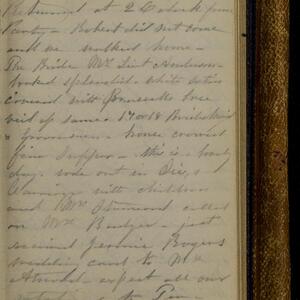 Returned at 2 O clock from
Party - Robert did not come
and we walked home -
The Bride Mrs Lieut Anderson
looked splendid - white satin
covered with lace
veil of same. 17 or 18 Bridesmaids
& groomsmen - house crowded
fine Supper - this is a lovely
day. rode out in
with children
and Mrs called
on Mrs Badger - just
received Jennie Rogers
wedding card to Mr
- expect all our